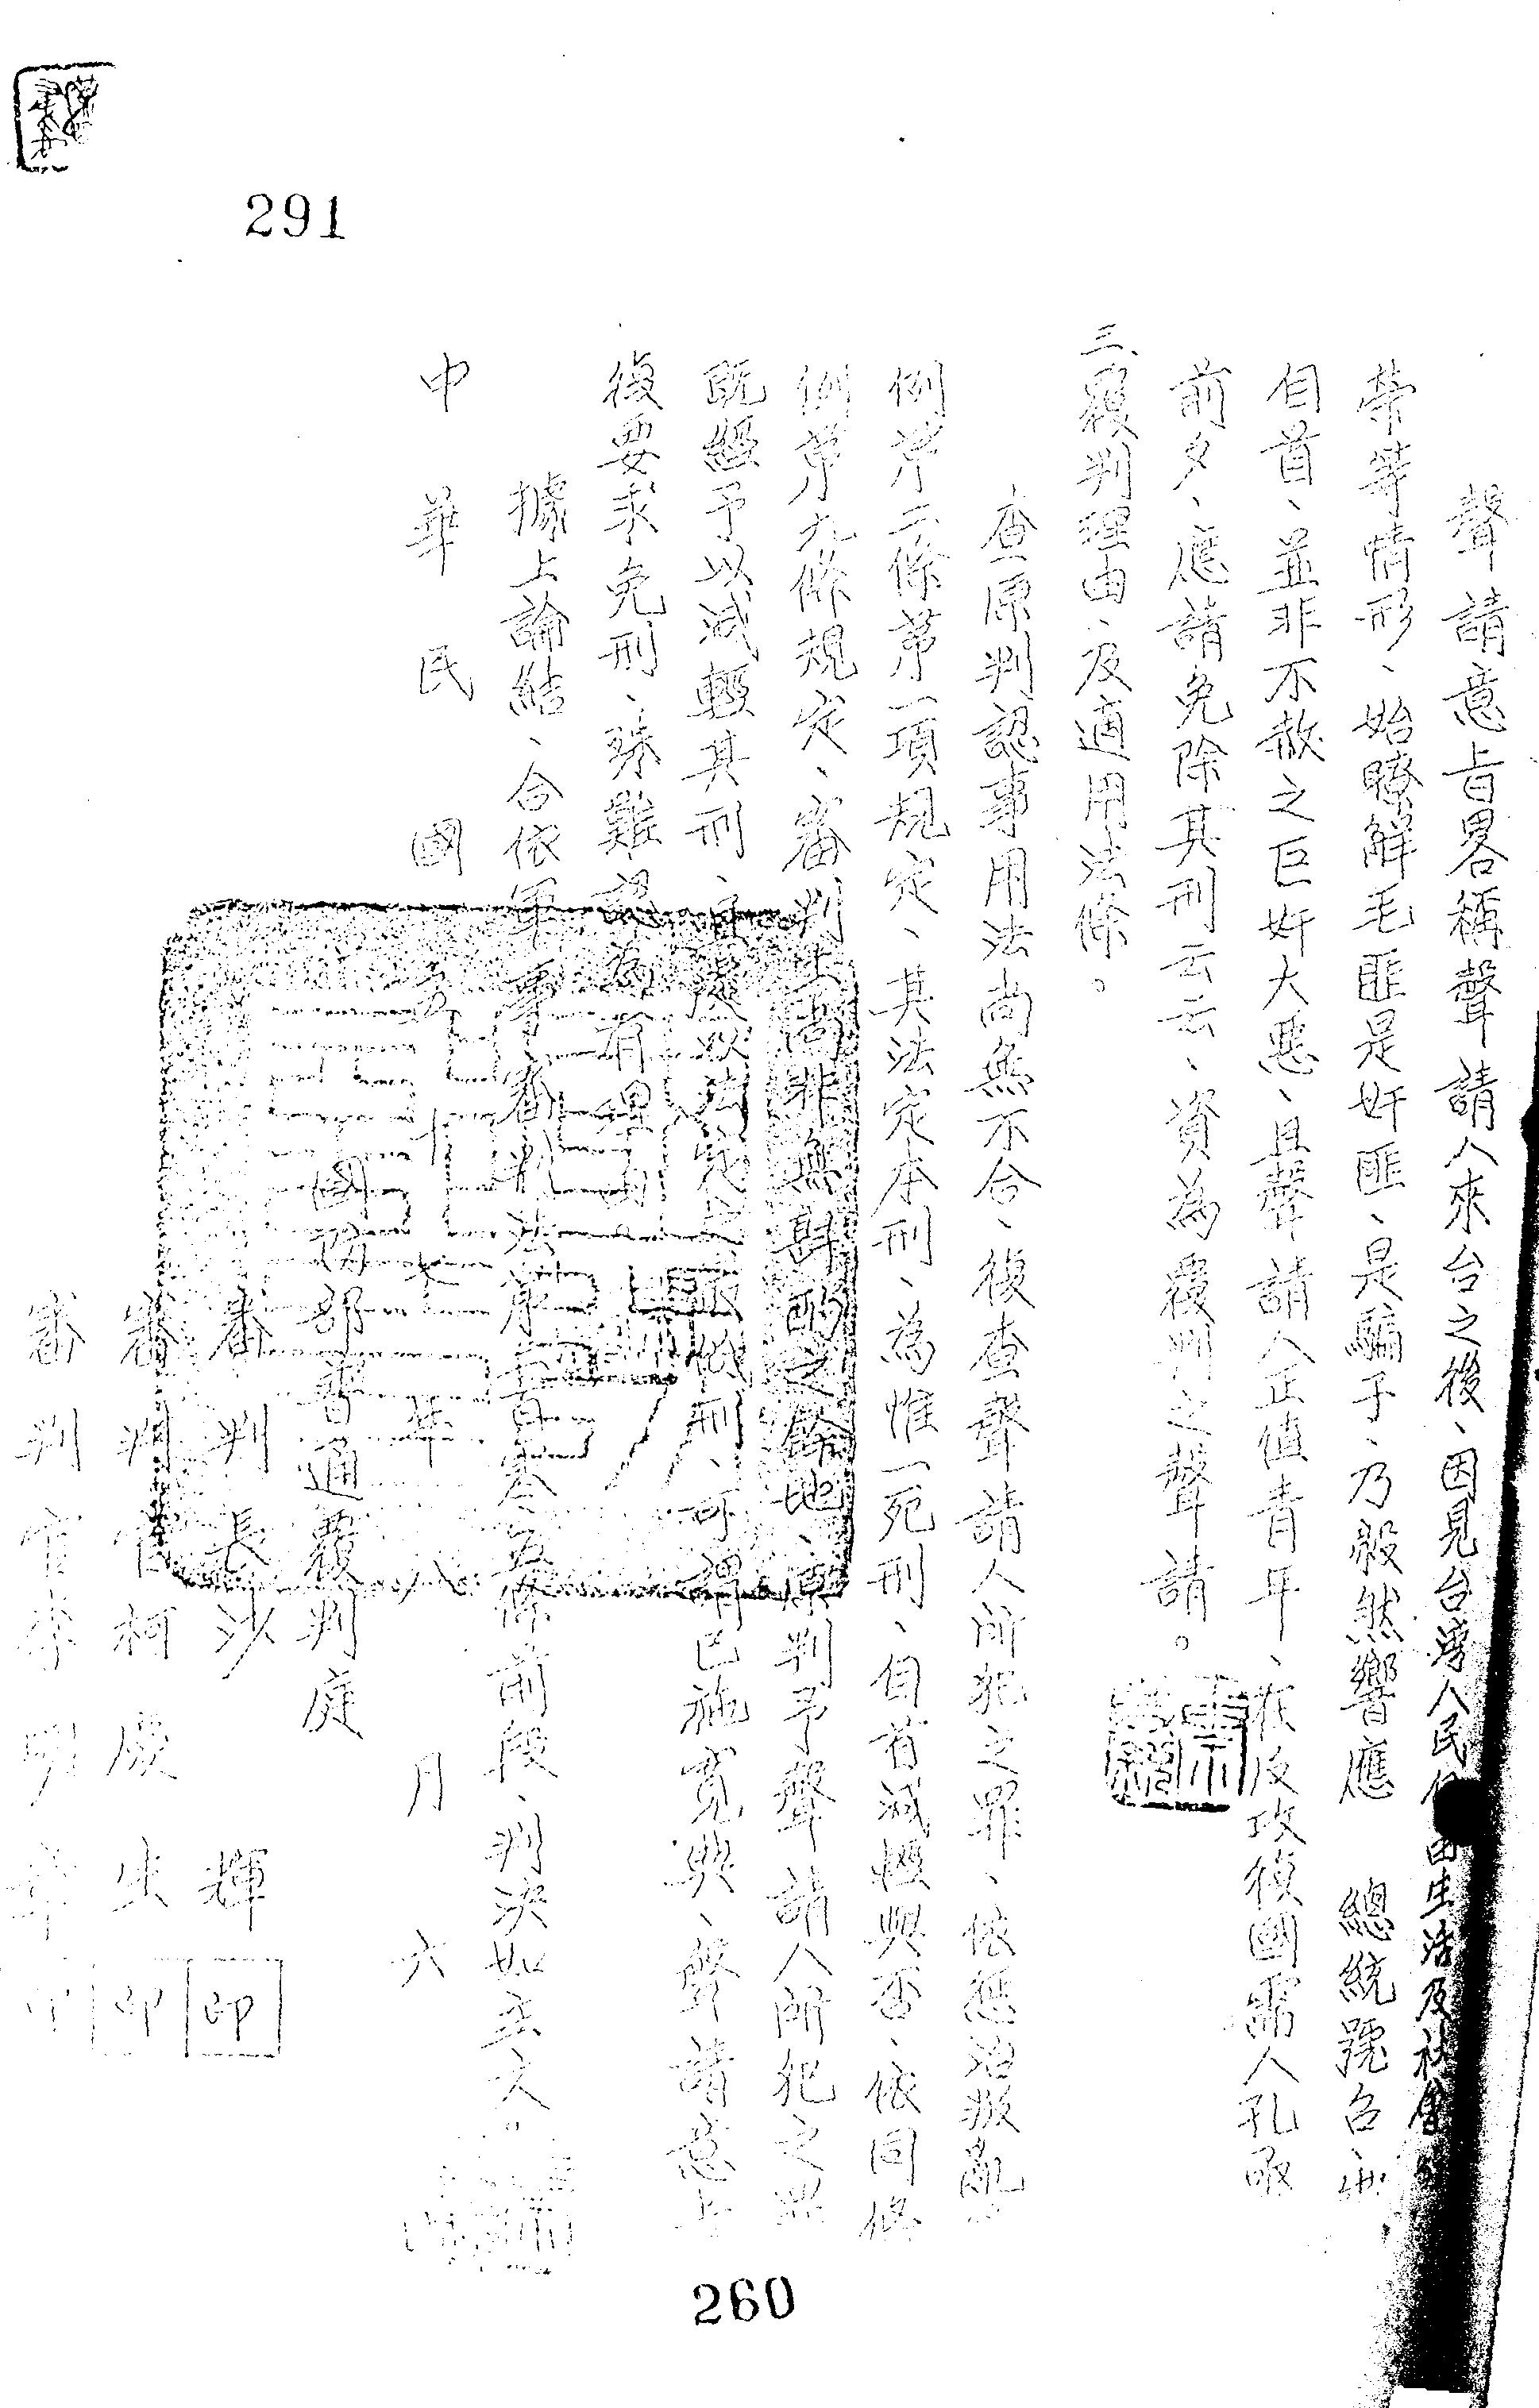 291
聲請意旨畧稱聲請人來台之後、因見台灣人民自由生活及社會
榮等情形、始瞭解毛匪是奸匪、是騙子、乃毅然響應　總統號召、
自首、並非不赦之巨奸大惡、且聲請人正值青年、在反攻復國需人孔亟
前夕、應請免除其刑云云、資為覆判之聲請。
三、覆判理由、及適用法條。
查原判認事用法尚無不合、復查聲請人所犯之罪、依懲治叛亂
例第二條第一項規定、其法定本刑、為惟一死刑、自首減輕與否、依同條
例第九條規定、審判上尚非無斟酌之餘地、原判予聲請人所犯之罪
既經予以減輕其刑、處以法定之最低刑、可謂已施寬典、聲請意旨
復要求免刑、殊難認為有理由
據上論結、合依軍事審判法第二百零五條前段、判決如主文。
中華民國　十七年八月六
國防部普通覆判庭
審判長沙　輝　印
審判官柯慶生　印
審判官李明
260